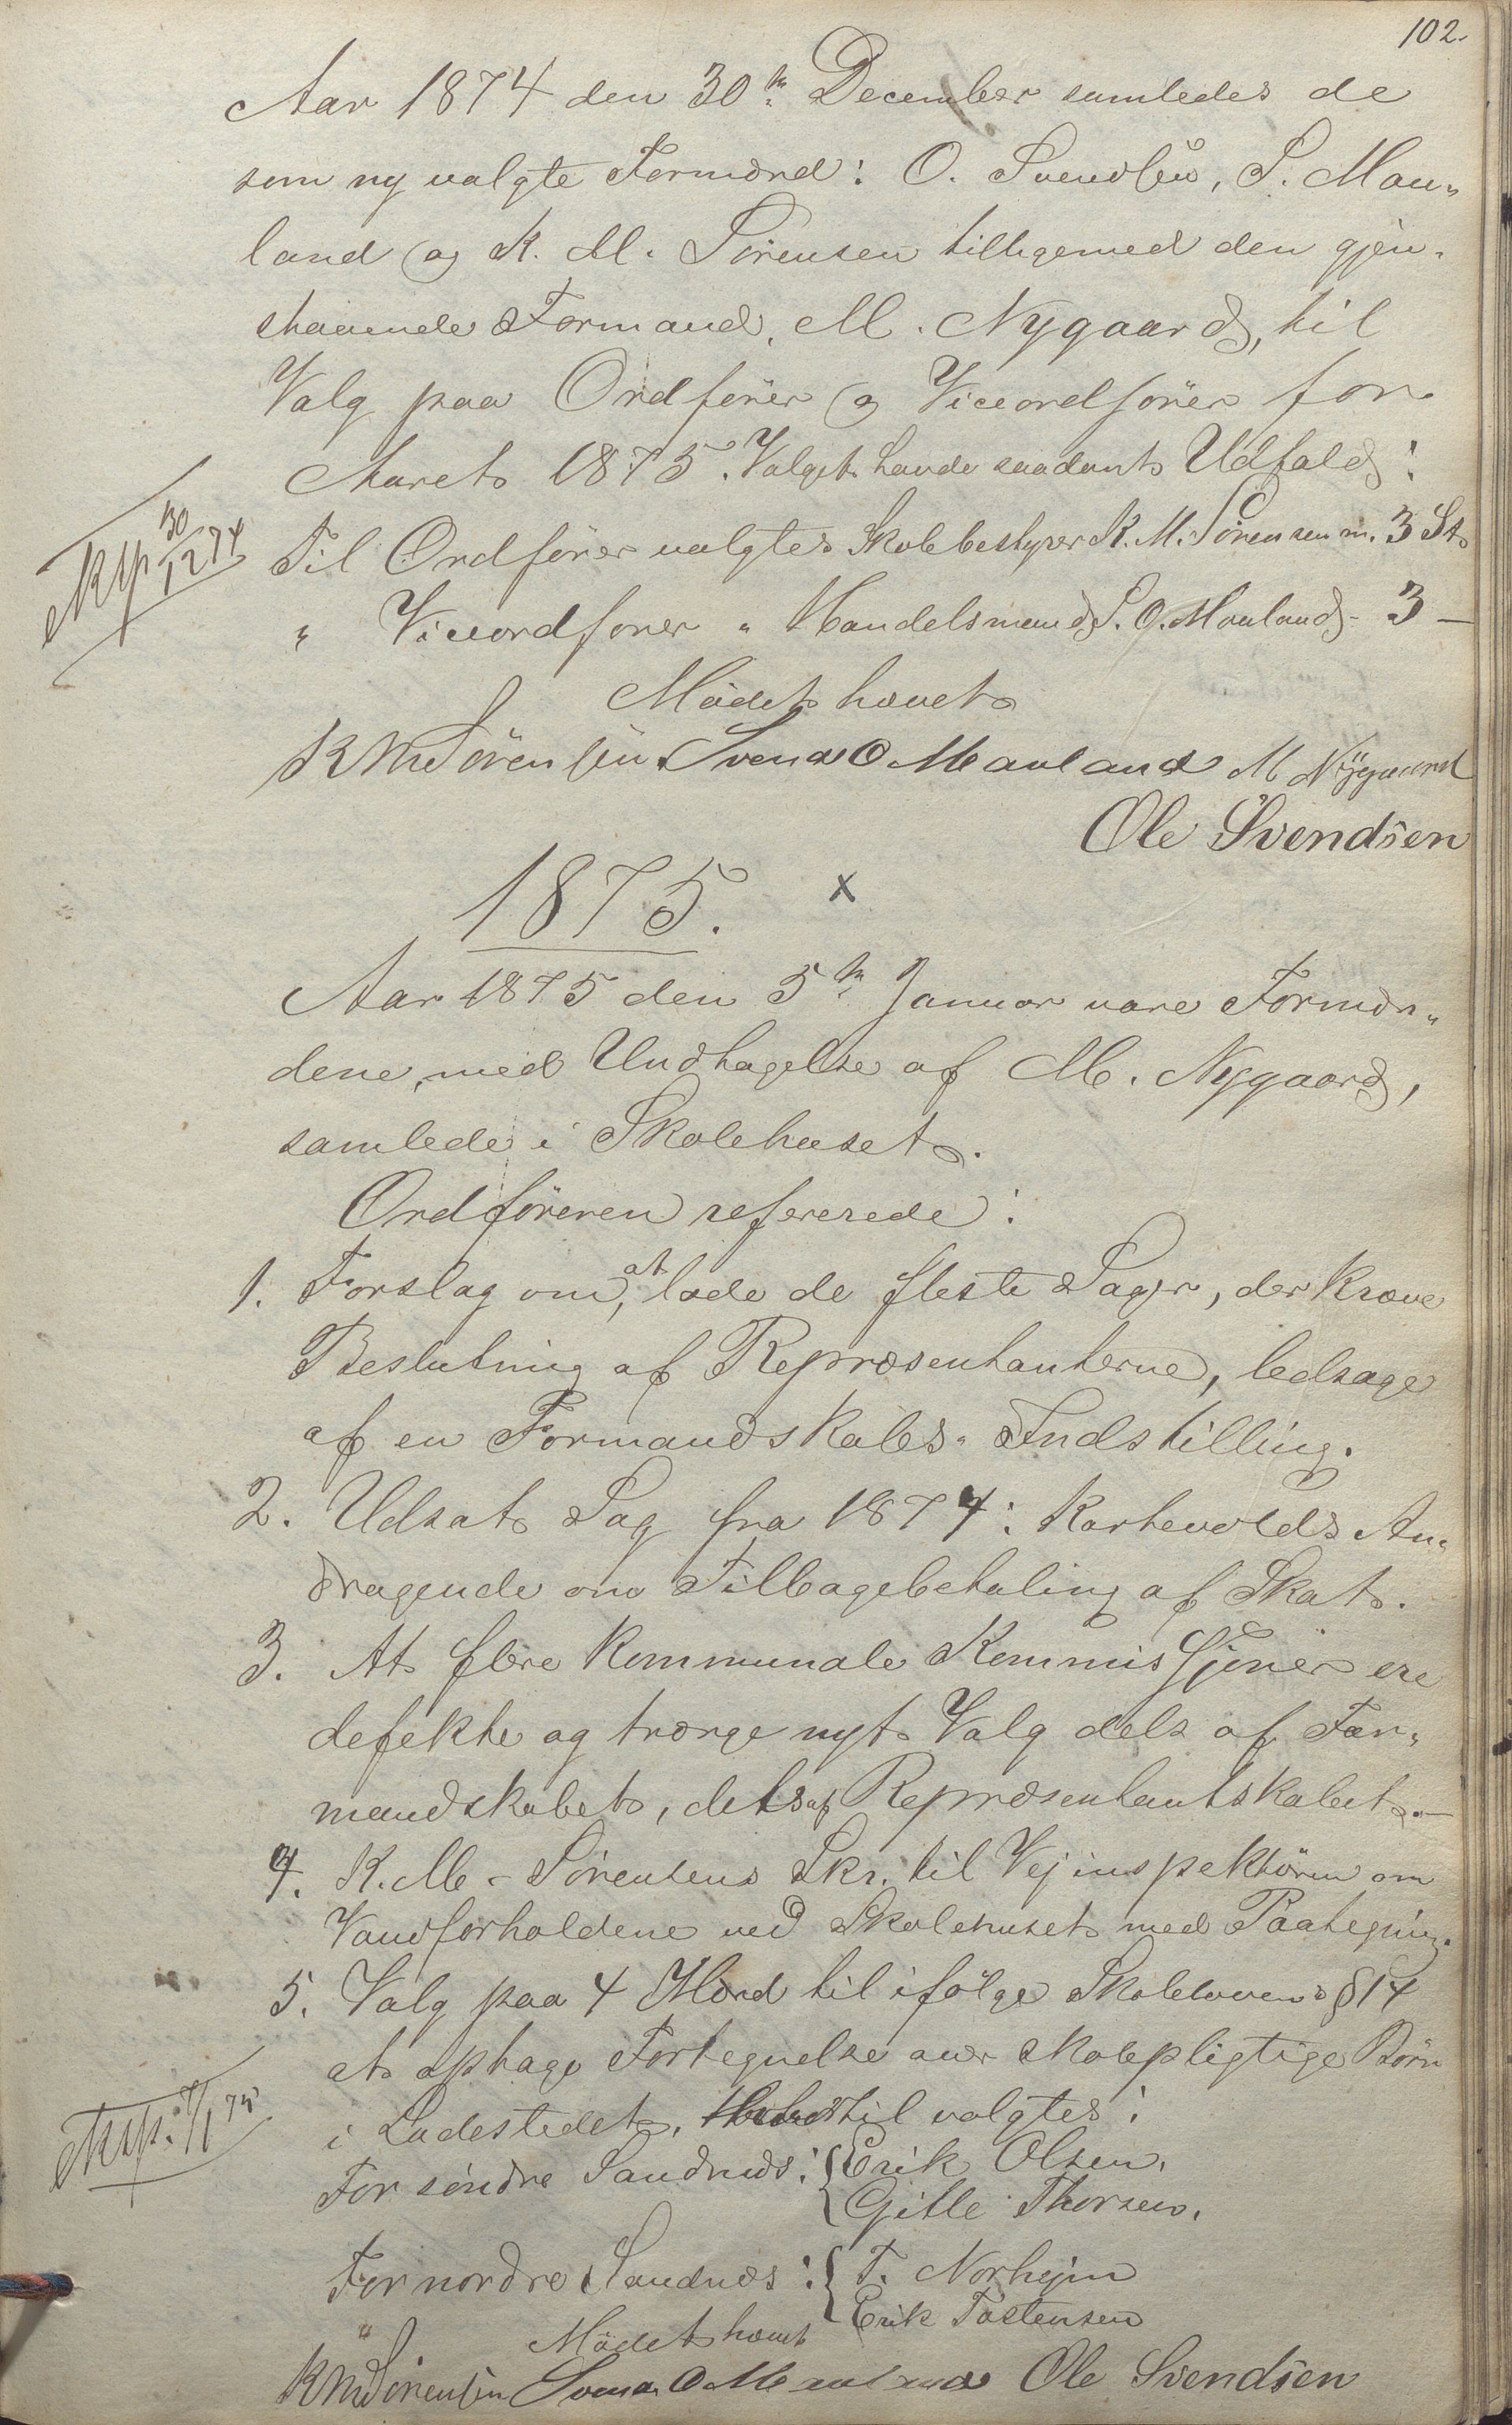 102.
Aar 1874 den 30te December samledes de
som ny valgte Formænd: O. Svendsen, S. Mau-
land og K. M. Sörensen tilligemed den gjen-
staaende Formand, M. Nygaard, til
Valg paa Ordförer og Viceordförer for
Aaret 1875. Valget havde saadant Udfald:
Exp 30/12 74
Til Ordförer valgtes Skolebestyrer K. M. Sörensen m. 3 St
" Viceordförer " Handelsmand S. O. Mauland - 3 —
Mödet hævet
K M Sörensen Svend O Mauland M Nÿgaard
Ole Svendsen
1875. x
Aar 1875 den 5te Januar vare Formæn-
dene, med Undtagelse af M. Nygaard,
samlede i Skolehuset.
Ordföreren refererede:
1. Forslag om, at lade de fleste Sager, der kræve
Beslutning af Repræsentanterne, ledsage
af en Formandskabs-Indstilling.
2. Udsat Sag fra 1874: Kartevolds An-
dragende om Tilbagebetaling af Skat.
3. At flere kommunale Kommissjoner ere
defekte og trænge nyt Valg dels af For-
mandskabet, dels af Repræsentantskabet. —
4. K. M. Sörensens Skr. til Vejinspektören om
Vandforholdene ved Skolehuset med Paategning.
5. Valg paa 4 Mænd til ifölge Skoleloven § 14
at optage Fortegnelse over skolepligtige Börn
i Ladestedet. Hertil valgtes:
Exp. 7/1 75
For söndre Sandnæs: { Erik Olsen.
Gitle Thorsen.
For nordre Sandnæs: { T. Norhejm
Erik Tostensen
Mödet hævet
K M Sörensen Svend O Mauland Ole Svendsen